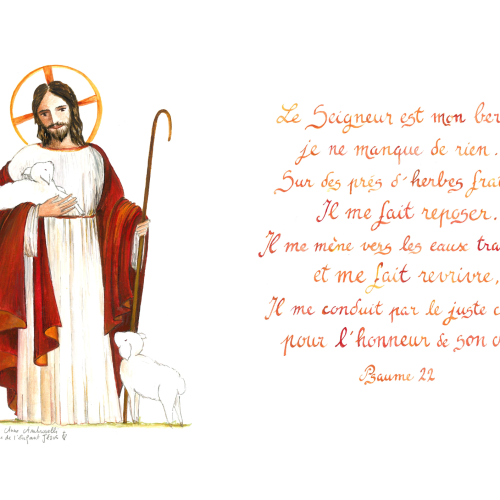 Le Seigneur est mon ber
je ne manque de rien.
Sur des prés d'herbes fraî
Il me fait reposer.
Il me mène vers les eaux tra
et me fait revivre,
Il me conduit par le juste c
pour l'honneur de son
Psaume 22
de l'Enfant Jésus